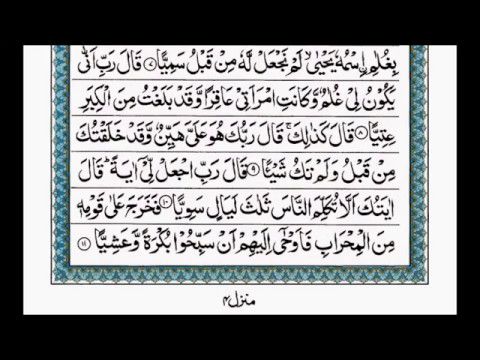 بِغُلٰمِ ۣاسْمُهٗ يَحْيٰى ۙ لَمْ نَجْعَلْ لَّهٗ مِنْ قَبْلُ سَمِيًّا ۝۷ قَالَ رَبِّ اَنّٰى
يَكُوْنُ لِيْ غُلٰمٌ وَّكَانَتِ امْرَاَتِيْ عَاقِرًا وَّقَدْ بَلَغْتُ مِنَ الْكِبَرِ
عِتِيًّا ۝۸ قَالَ كَذٰلِكَ ۚ قَالَ رَبُّكَ هُوَ عَلَيَّ هَيِّنٌ وَّقَدْ خَلَقْتُكَ
مِنْ قَبْلُ وَلَمْ تَكُ شَيْـًٔا ۝۹ قَالَ رَبِّ اجْعَلْ لِّيْٓ اٰيَةً ؕ قَالَ
اٰيَتُكَ اَلَّا تُكَلِّمَ النَّاسَ ثَلٰثَ لَيَالٍ سَوِيًّا ۝۱۰ فَخَرَجَ عَلٰى قَوْمِهٖ
مِنَ الْمِحْرَابِ فَاَوْحٰٓى اِلَيْهِمْ اَنْ سَبِّحُوْا بُكْرَةً وَّعَشِيًّا ۝۱۱
منزل ۴